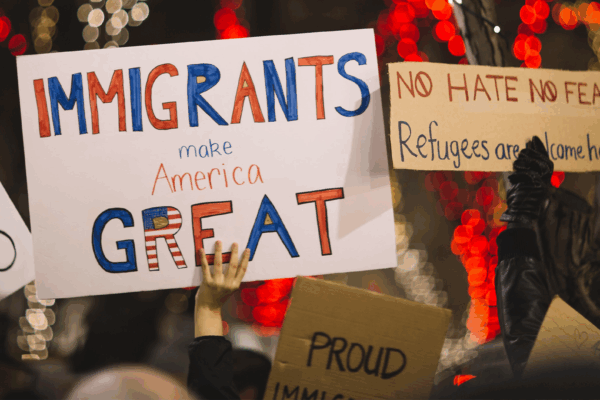 IMMIGRANTS
make
America
GREAT
NO HATE NO FEA
Refugees are lcome he
PROUD
IMMIGR